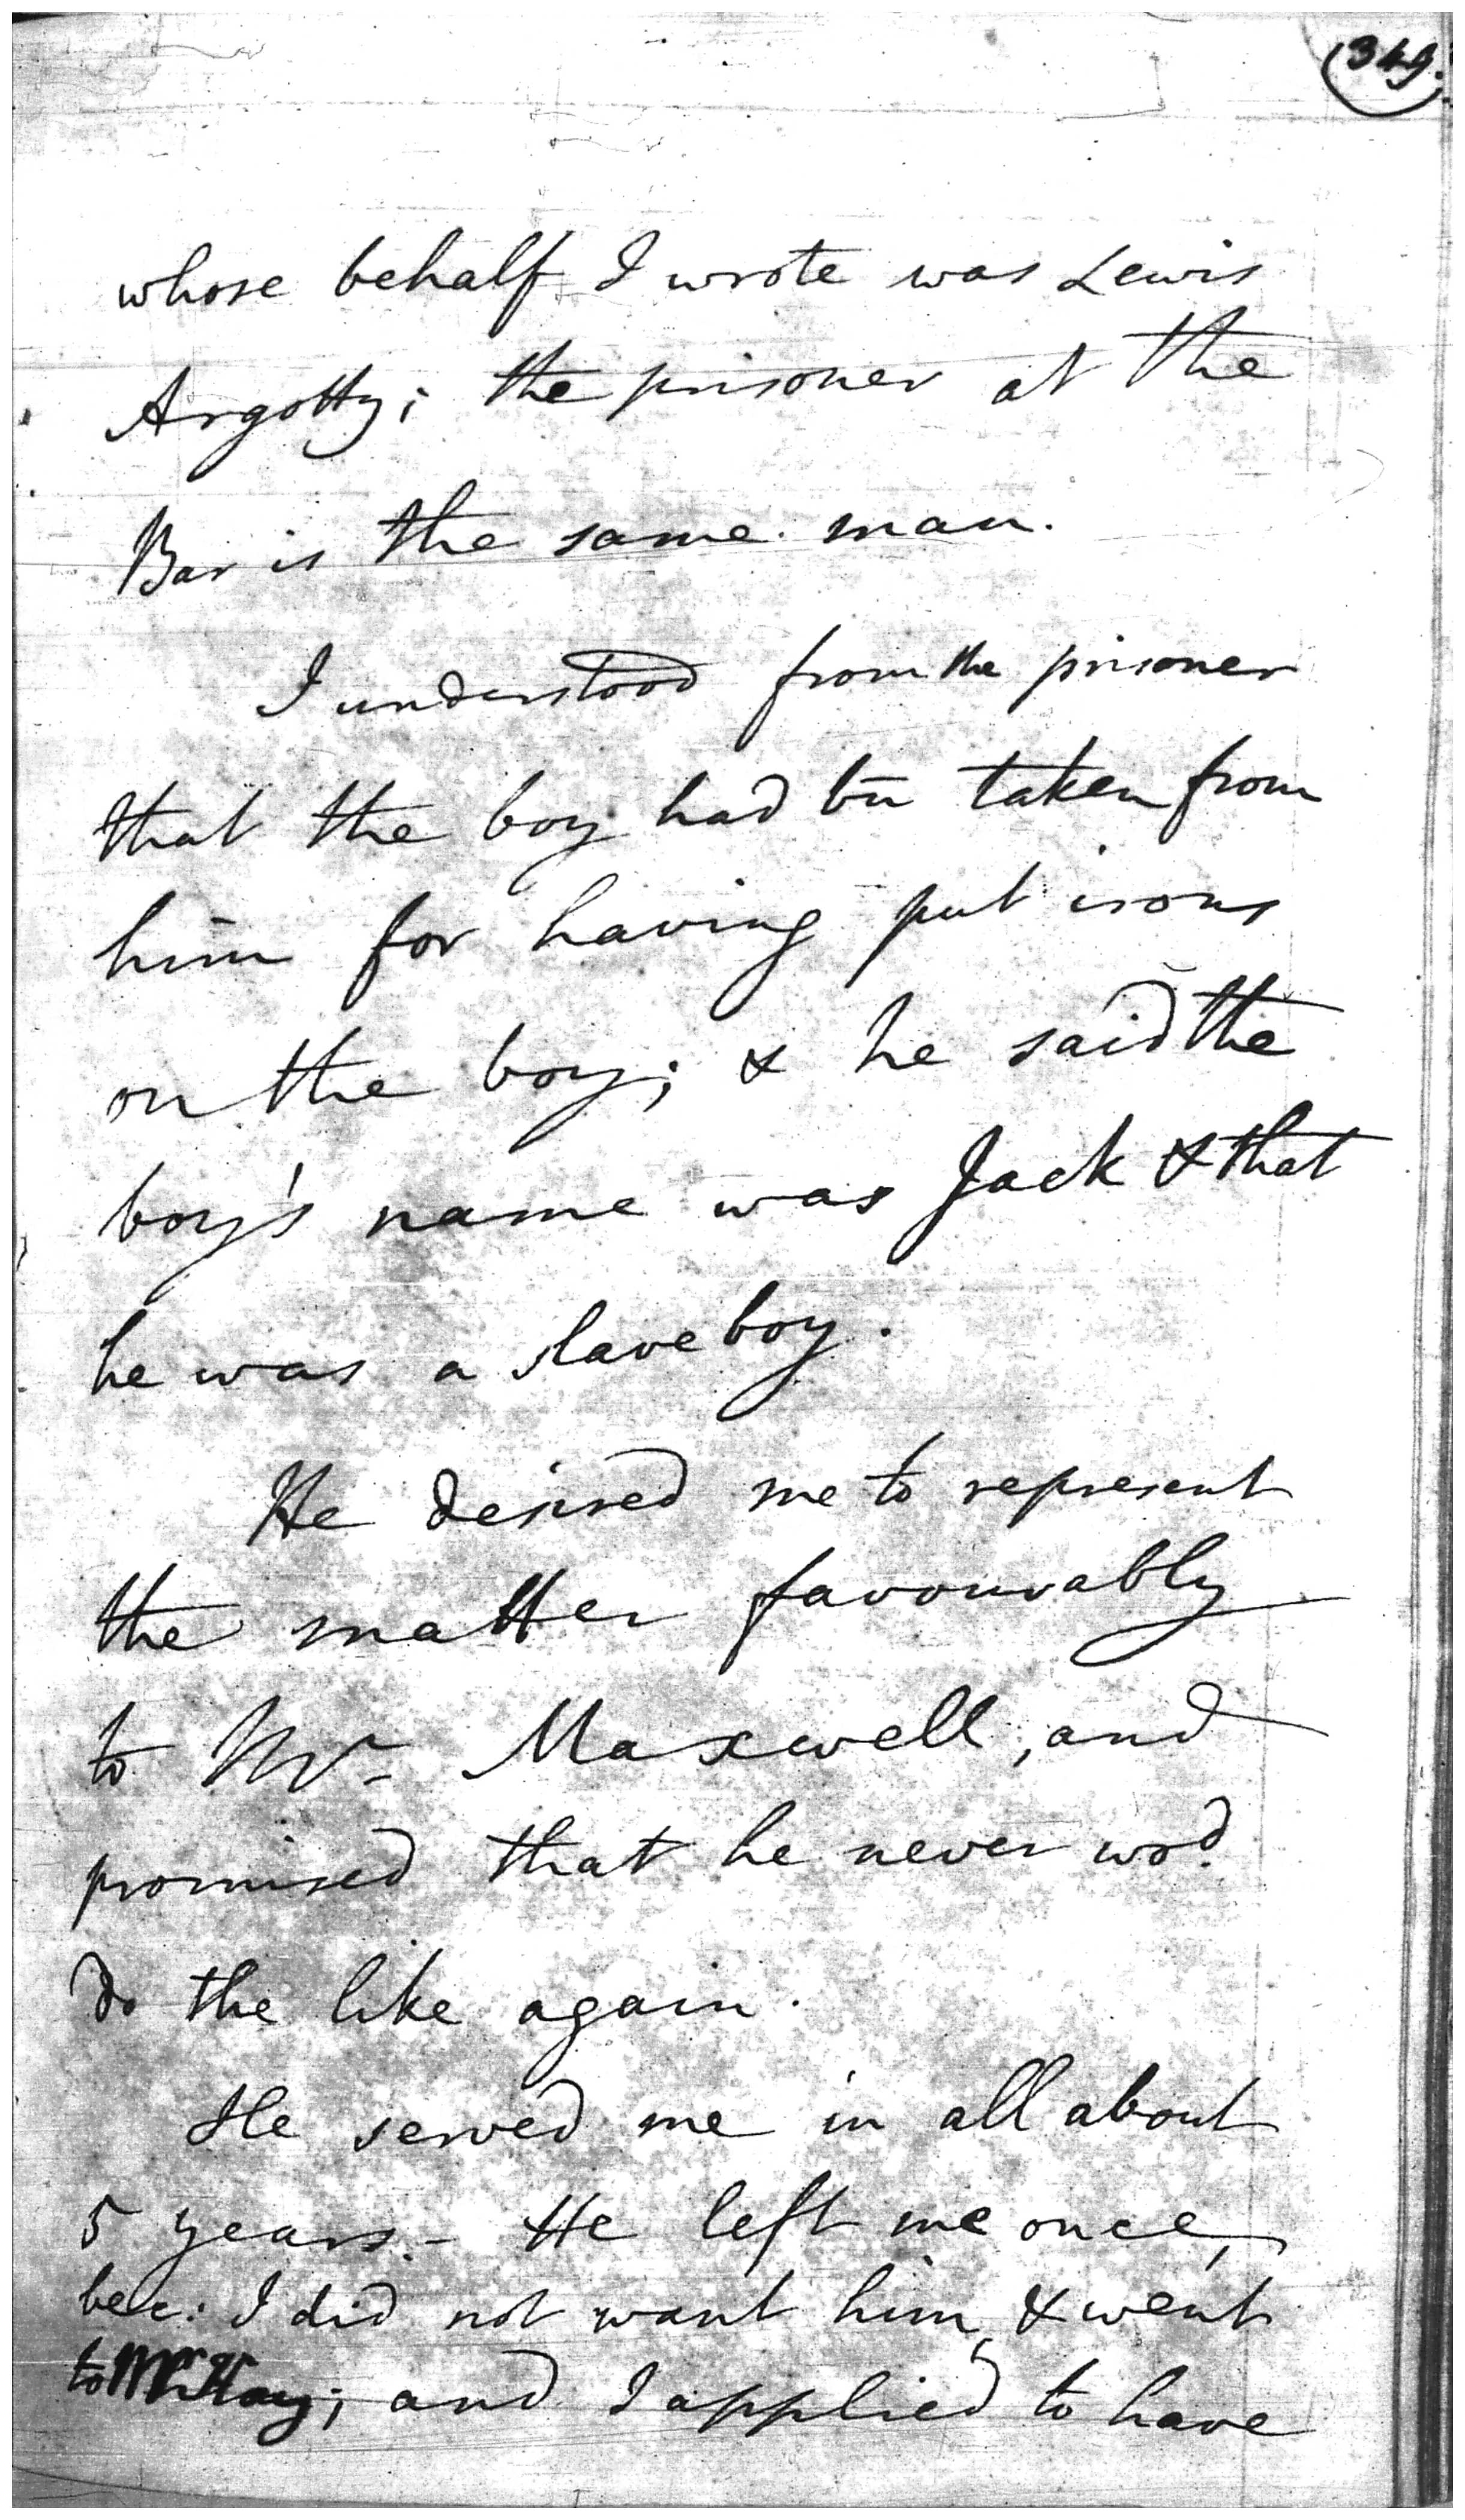 (349.
whose behalf I wrote was Lewis
Argotty; the prisoner at the
Bar is the same man.
I understood from the prisoner
that the boy had bn taken from
him for having put irons
on the boy; & he said the
boy's name was Jack & that
he was a slave boy.
He desired me to represent
the matter favourably
to Mr. Maxwell, and
promised that he never wod.
do the like again.
He served me in all about
5 years. - He left me once,
bec: I did not want him, & went
to Mr Hay; and I applied to have